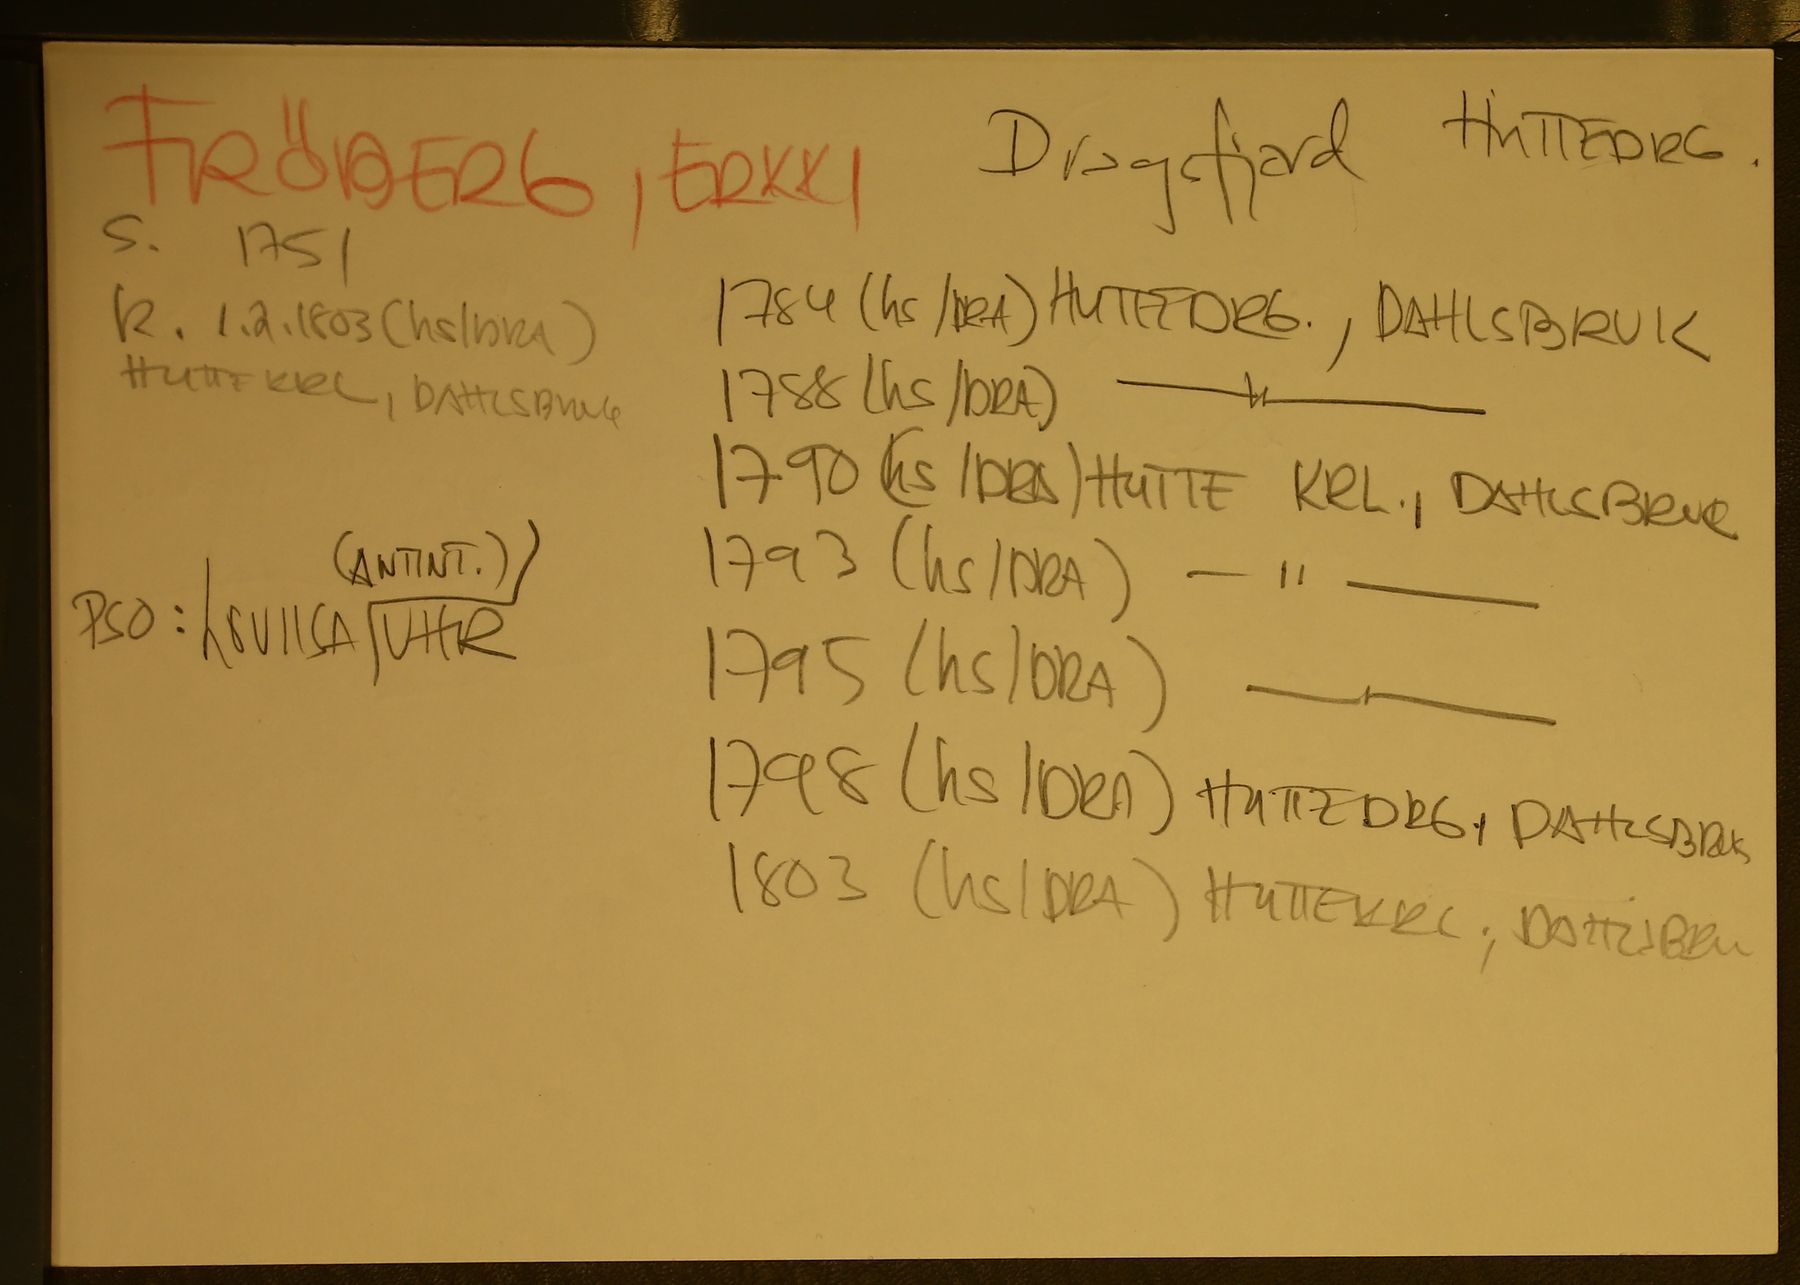 FRÖBERG, ERKKI
Dragsfjard HÜTTEDRG.
S. 1751
K. 1.2.1803 (hs/DRA)
HUTTEKRL, DAHLSBRUK
(ANTINT.)
PSO: LOVIISA VHR
1784 (hs/DRA) HUTTEDRG., DAHLSBRUK
1788 (hs/DRA) — " —
1790 (hs/DRA) HUTTE KRL., DAHLSBRUK
1793 (hs/DRA) — " —
1795 (hs/DRA) — " —
1798 (hs/DRA) HUTTEDRG, DAHLSBRUK
1803 (hs/DRA) HUTTEKRL, DAHLSBRU